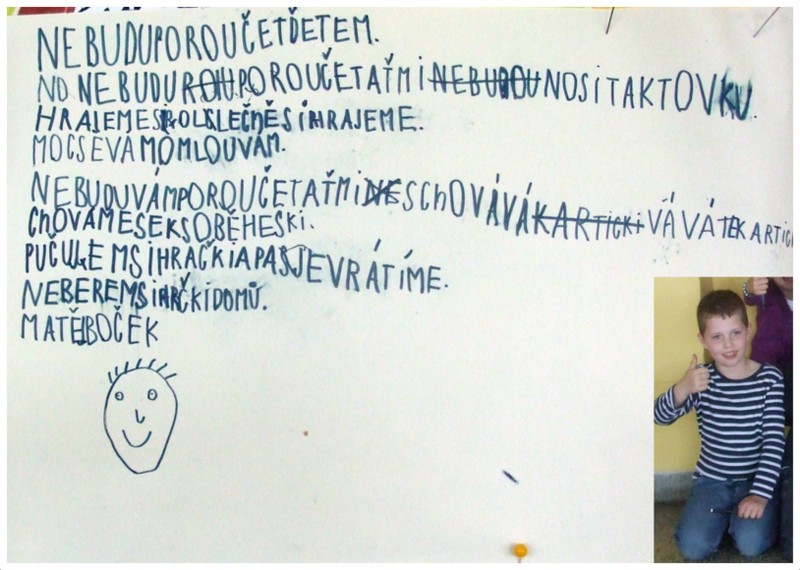 NEBUDUPOROUČETĎETEM.
NO NEBUDU POROUČETAŤMI NEBUDOU NOSiTAKTOVKU.
HRAJEMESi SLEČŇĚSiHRAJEME.
MOCSEVAMOMLOUVÁM.
NEBUDUVÁMPOROUČETAŤMi NESChOVÁVÁ KARTiCKi VÁVÁTEKARTiCi
ChOVÁMESEKSOBĚHESKi.
PŮČUJEMSiHRAČKiAPASJEVRÁTÍME.
NEBEREMSiHRČKiDOMŮ.
MATĚJBOČEK